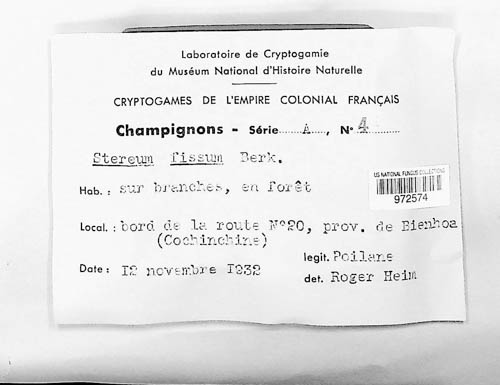 Laboratoire de Cryptogamie
du Muséum National d'Histoire Naturelle
CRYPTOGAMES DE L'EMPIRE COLONIAL FRANÇAIS
Champignons - Série A, N° 4
Stereum fissum Berk.
Hab. : sur branches, en forêt
US NATIONAL FUNGUS COLLECTIONS
972574
Local. : bord de la route N°20, prov. de Bienhoa
(Cochinchine)
legit. Poilane
Date : I2 novembre I932
det. Roger Heim